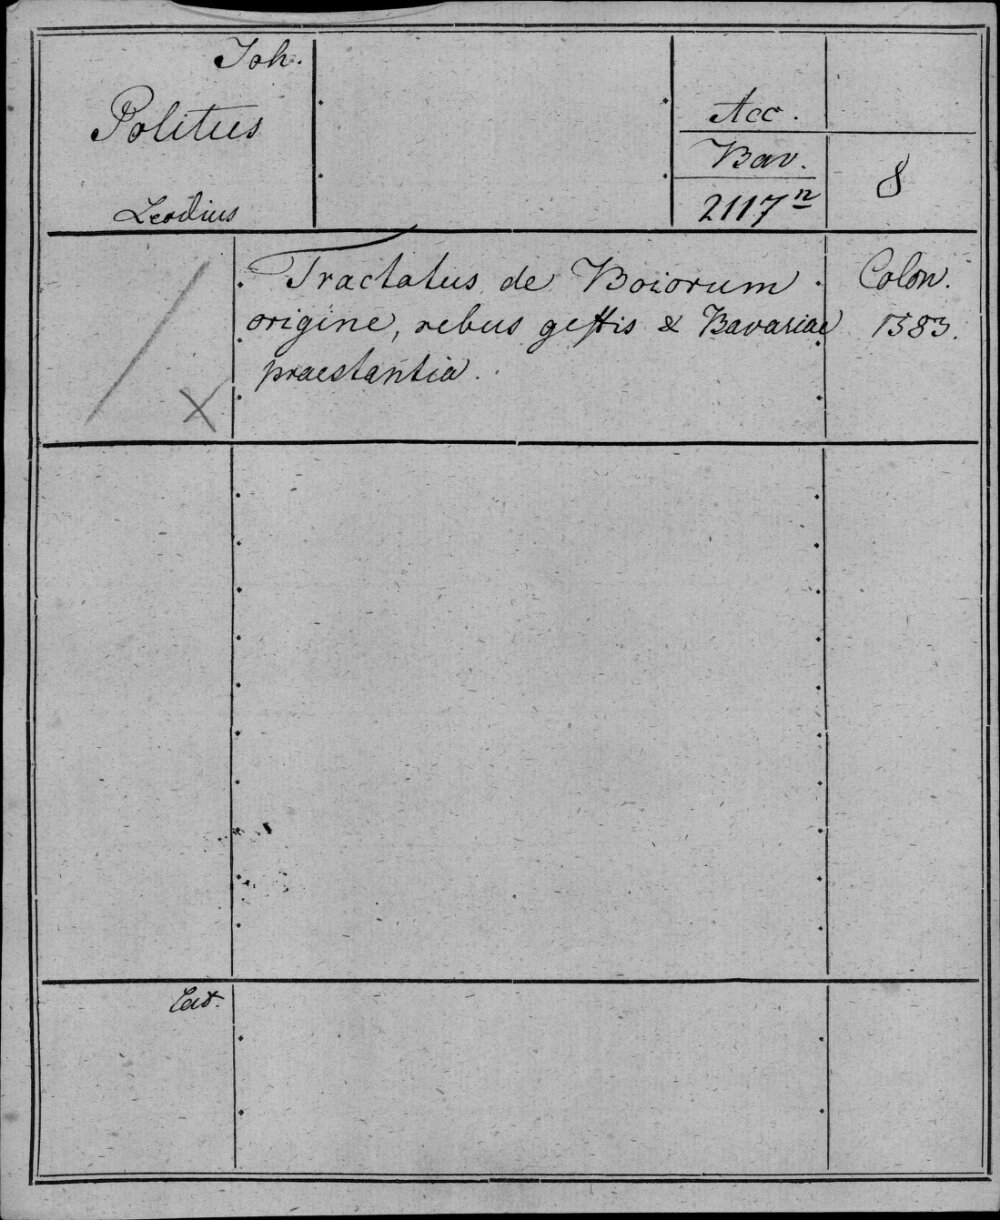 Joh.
Politus
Leodius
Acc.
Bav.
2117 n
8
Tractatus de Boiorum
origine, rebus gestis & Bavariae
praestantia.
Colon.
1583.
X